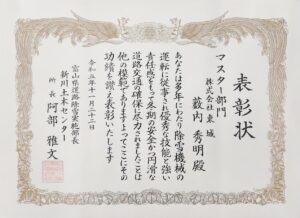 表彰状
マスター部門
株式会社東城
藪内秀明殿
あなたは多年にわたり除雪機械の
運転に従事され優秀な技能と強い
責任感をもって冬期の安全かつ円滑な
道路交通の確保に尽力されましたことは
他の模範でありますよってここにその
功績を讃え表彰いたします
令和五年十一月二十二日
富山県道路除雪実施部長
新川土木センター
所長 阿部雅文